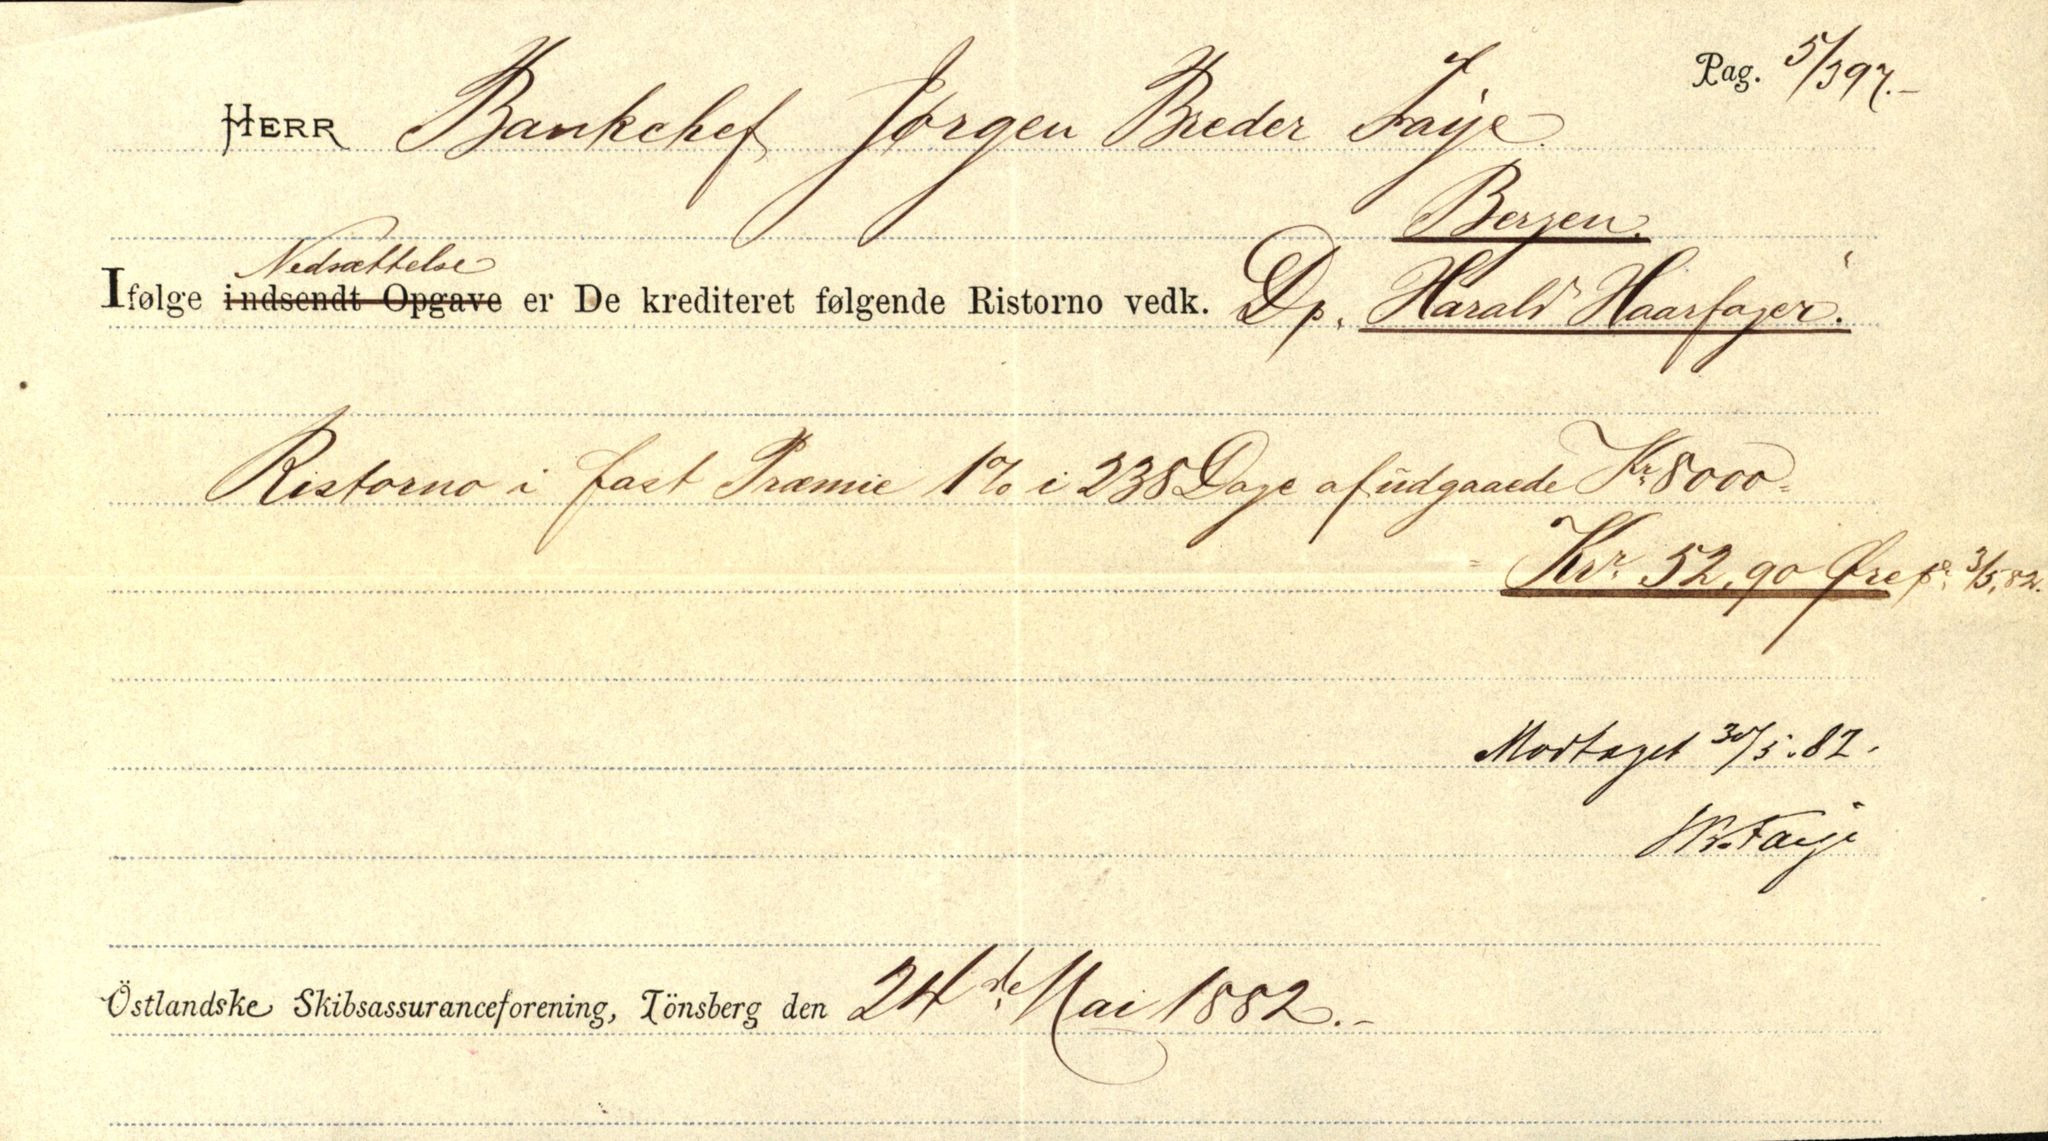 Pag. 5/397.-
HERR Bankchef Jørgen Breder Faÿe.
Bergen.
Nedsættelse
Ifølge indsendt Opgave er De krediteret følgende Ristorno vedk. Dp. Harald Haarfager.
Ristorno i fast Præmie 1% i 238 Dage af udgaaede Kr 8000=
= Kr. 52,90 Øre pr. 3/5.82.
Modtaget 30/5.82.
Br. Faye
Östlandske Skibsassuranceforening, Tönsberg den 24de Mai 1882.-